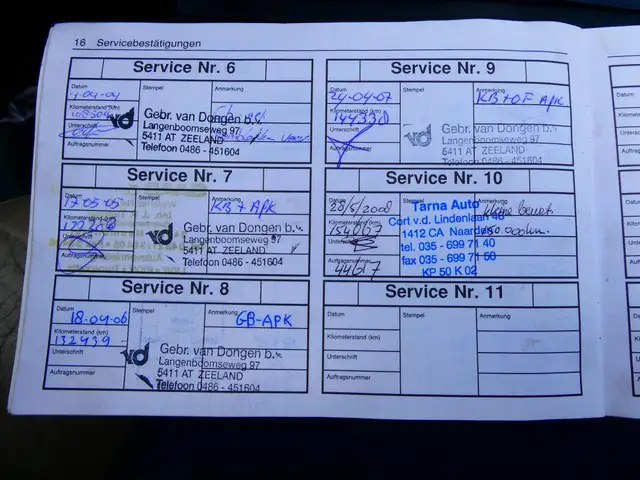 16 Servicebestätigungen
Service Nr. 6
Datum Stempel Anmerkung
Kilometerstand (km)
Unterschrift
Auftragsnummer
vd Gebr. van Dongen b.v.
Langenboomseweg 97
5411 AT ZEELAND
Telefoon 0486 - 451604
Service Nr. 7
Datum Stempel Anmerkung
17-05-05 KB + APK
Kilometerstand (km)
Unterschrift
Auftragsnummer
vd Gebr. van Dongen b.v.
Langenboomseweg 97
5411 AT ZEELAND
Telefoon 0486 - 451604
Service Nr. 8
Datum Stempel Anmerkung
18-04-06 GB-APK
Kilometerstand (km)
132439
Unterschrift
Auftragsnummer
vd Gebr. van Dongen b.v.
Langenboomseweg 97
5411 AT ZEELAND
Telefoon 0486 - 451604
Service Nr. 9
Datum Stempel Anmerkung
24-04-07 APK
Kilometerstand (km)
144338
Unterschrift
Auftragsnummer
vd Gebr. van Dongen b.v.
Langenboomseweg 97
5411 AT ZEELAND
Telefoon 0486 - 451604
Service Nr. 10
Datum Anmerkung
28/5/2008 kleine beurt
Kilometerstand (km)
Unterschrift
Auftragsnummer
44617
Tarna Auto
Cort v.d. Lindenlaan
1412 CA Naarden
tel. 035 - 699 71 40
fax 035 - 699 71 50
KP 50 K 02
Service Nr. 11
Datum Stempel Anmerkung
Kilometerstand (km)
Unterschrift
Auftragsnummer